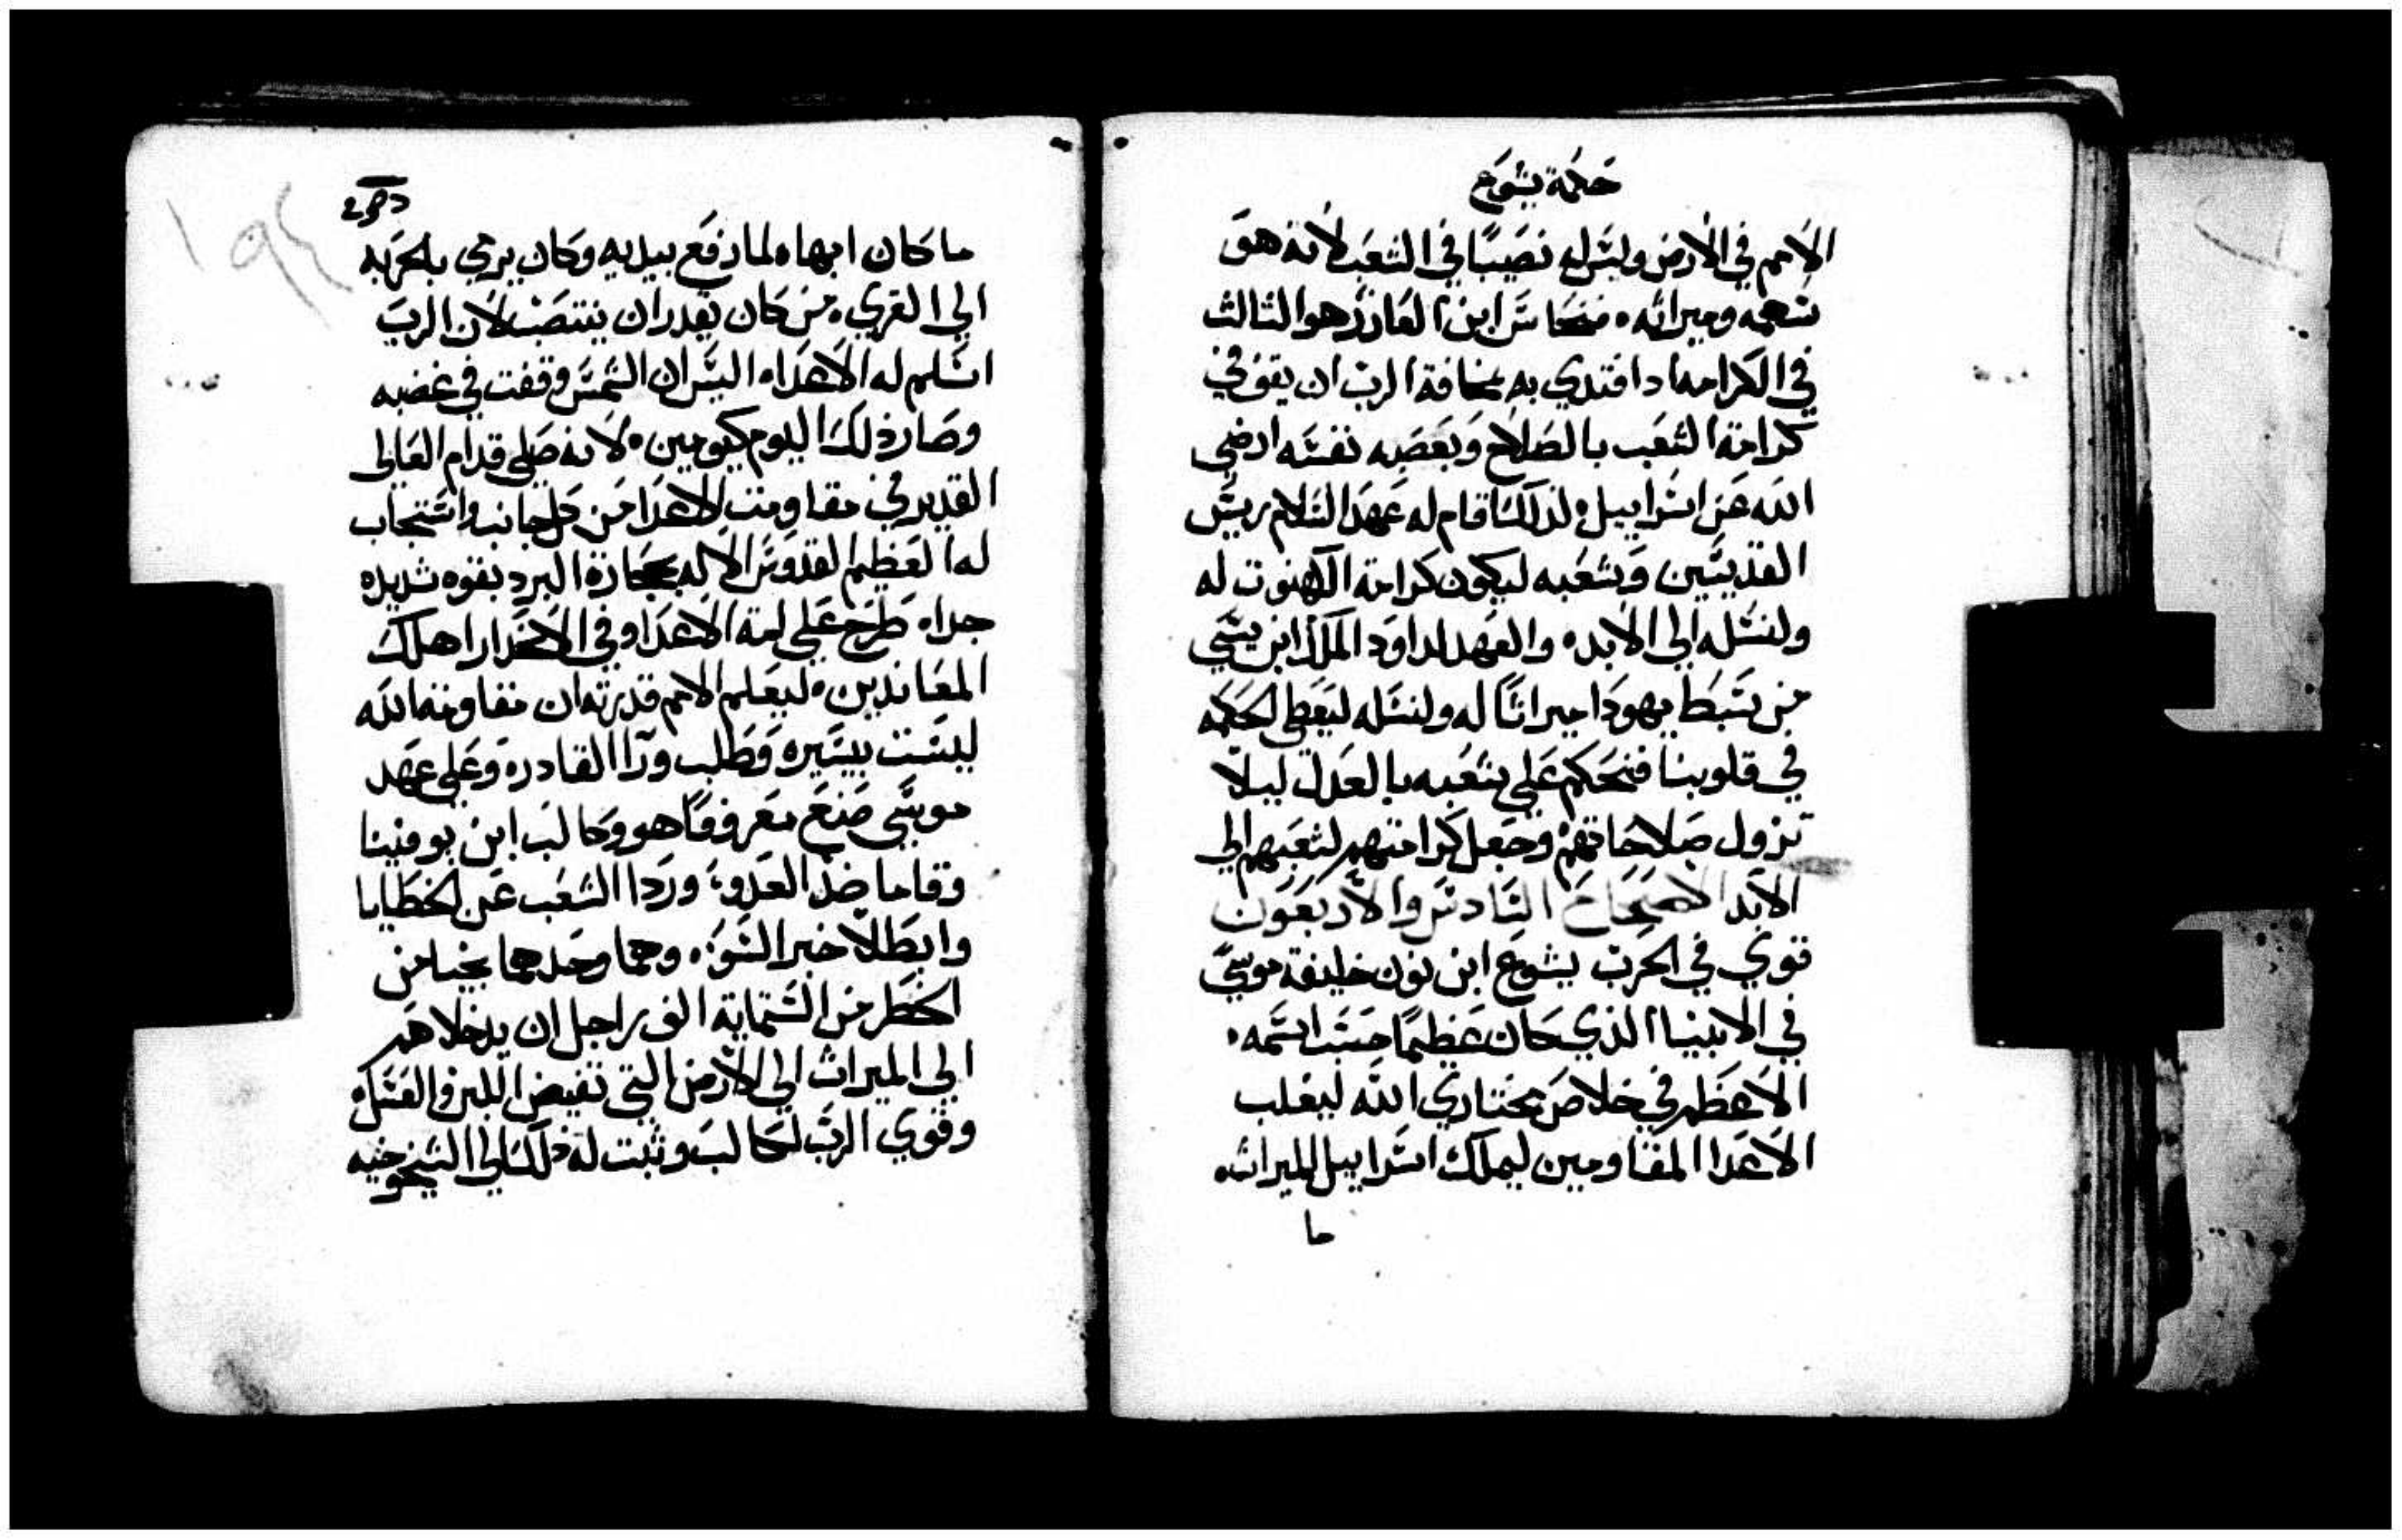 حكمة يشوع
الامم في الارض وليس له نصيبًا في الشعب لانه هو
سهمه وميراثه، فنحاس ابن العازر هو الثالث
في الكرامه اذ اقتدي به بمخافة الرب ان يقف في
كرامة الشعب بالصلاح وبعصبه نفسه ارضي
الله عن اسراييل، لذلك اقام له عهد السلام ريس
القديسين وشعبه ليكون كرامة الكهنوت له
ولنسله الي الابد، والعهد لداود الملك ابن يسي
من سبط يهودا ميراثًا له ولنسله ليعطي الحكمه
في قلوبنا فنحكم علي شعبه بالعدل ليلا
تزول صلاحاتهم وجعل كرامتهم لشعبهم الي
الابد الاصحاح السادس والاربعون
قوي في الحرب يشوع ابن نون خليفة موسي
في الانبيا الذي كان عظيمًا حسب اسمه،
الاعظم في خلاص مختاري الله ليغلب
الاعدا المقاومين ليملك اسراييل الميراث،
ما
ما كان ابهاه لما رفع بيديه وكان يرمي بالحربه
الي القري، من كان يقدر ان ينتصب لان الرب
اسلم له الاعدا، اليس ان الشمس وقفت في غضبه
وصار ذلك اليوم كيومين، لانه صلي قدام العالي
القدير في مقاومت الاعدا من كل جانب واستجاب
له العظيم القدوس الاله بحجارة البرد بقوه شديده
جدا، طرح علي لمة الاعدا وفي الانحدار اهلك
المعاندين، ليعلم الامم قدرته ان مقاومة الله
ليست بيسيره وطلب ورا القادره وعلي عهد
موسي صنع معروفًا هو وكالب ابن يوفنينا
وقاما ضد العدو، وردا الشعب عن الخطايا
وابطلا خبر السو، وهما وحدهما نجيا من
الخطر من الستماية الف راجل ان يدخلاهم
الي الميراث الي الارض التي تفيض اللبن والعسل،
وقوي الرب لكالب وثبت له ذلك الي الشيخوخيه